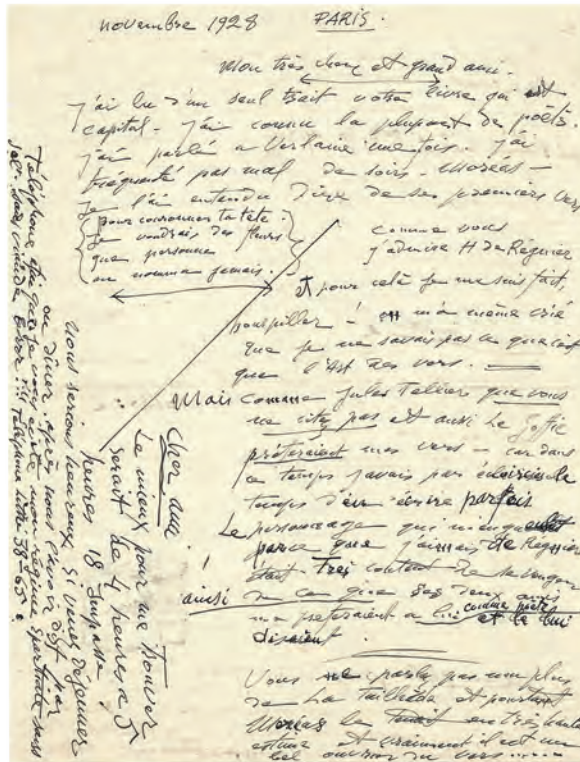 novembre 1928 PARIS.
Mon très cher et grand ami.
j'ai lu d'un seul trait votre livre qui est
capital. j'ai connu la plupart de poëts.
j'ai parlé a Verlaine une fois. j'ai
fréquenté pas mal de soirs. Moréas —
je l'ai entendu dire de ses premiers vers
pour couronner ta tête.
je voudrais des fleurs
que personne
ne nomma jamais.
comme vous
j'admire H de Régnier
et pour celà je me suis fait,
houspiller! on m'a même crié
que je ne savais pas ce que c'est
que l'est des vers.
Mais comme Jules Tellier que vous
ne citez pas et aussi Le Goffic
préféraient mes vers — car dans
ce temps javais pas
temps d'en écrire parfois
Le personnage qui
parce que j'aimais de Régnier
était très content de se venger
ainsi
de ce que ses deux amis
me préféraient a lui comme poète
et le lui
disaient.
Vous ne parlez pas non plus
de La Tailhède et pourtant
Moréas le tenait en très haute
estime et vraiment il est un
bel ouvrier du vers.....
cher ami
Le mieux pour me trouver
serait de 4 heures a 5
heures 18 Impasse
nous serions heureux si veniez déjeuner
ou dîner après nous l'avoir dit par
Téléphone afin que je vous évite mon régime spartiate sans
sel. sans viande Téléphone 38-65.